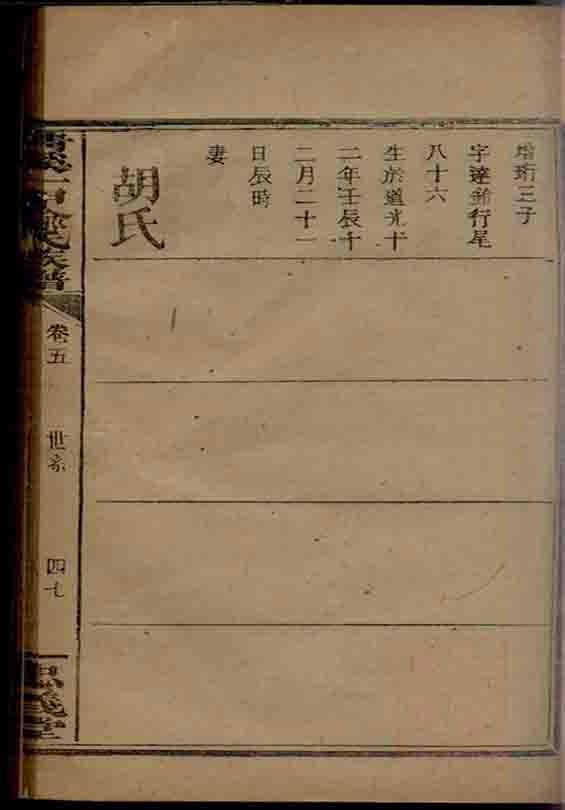 增珩三子
字達鉛行尾
八十六
生於道光十
二年壬辰十
二月二十一
日辰時
妻
胡氏
氏族譜
卷五
世系
四七
堂